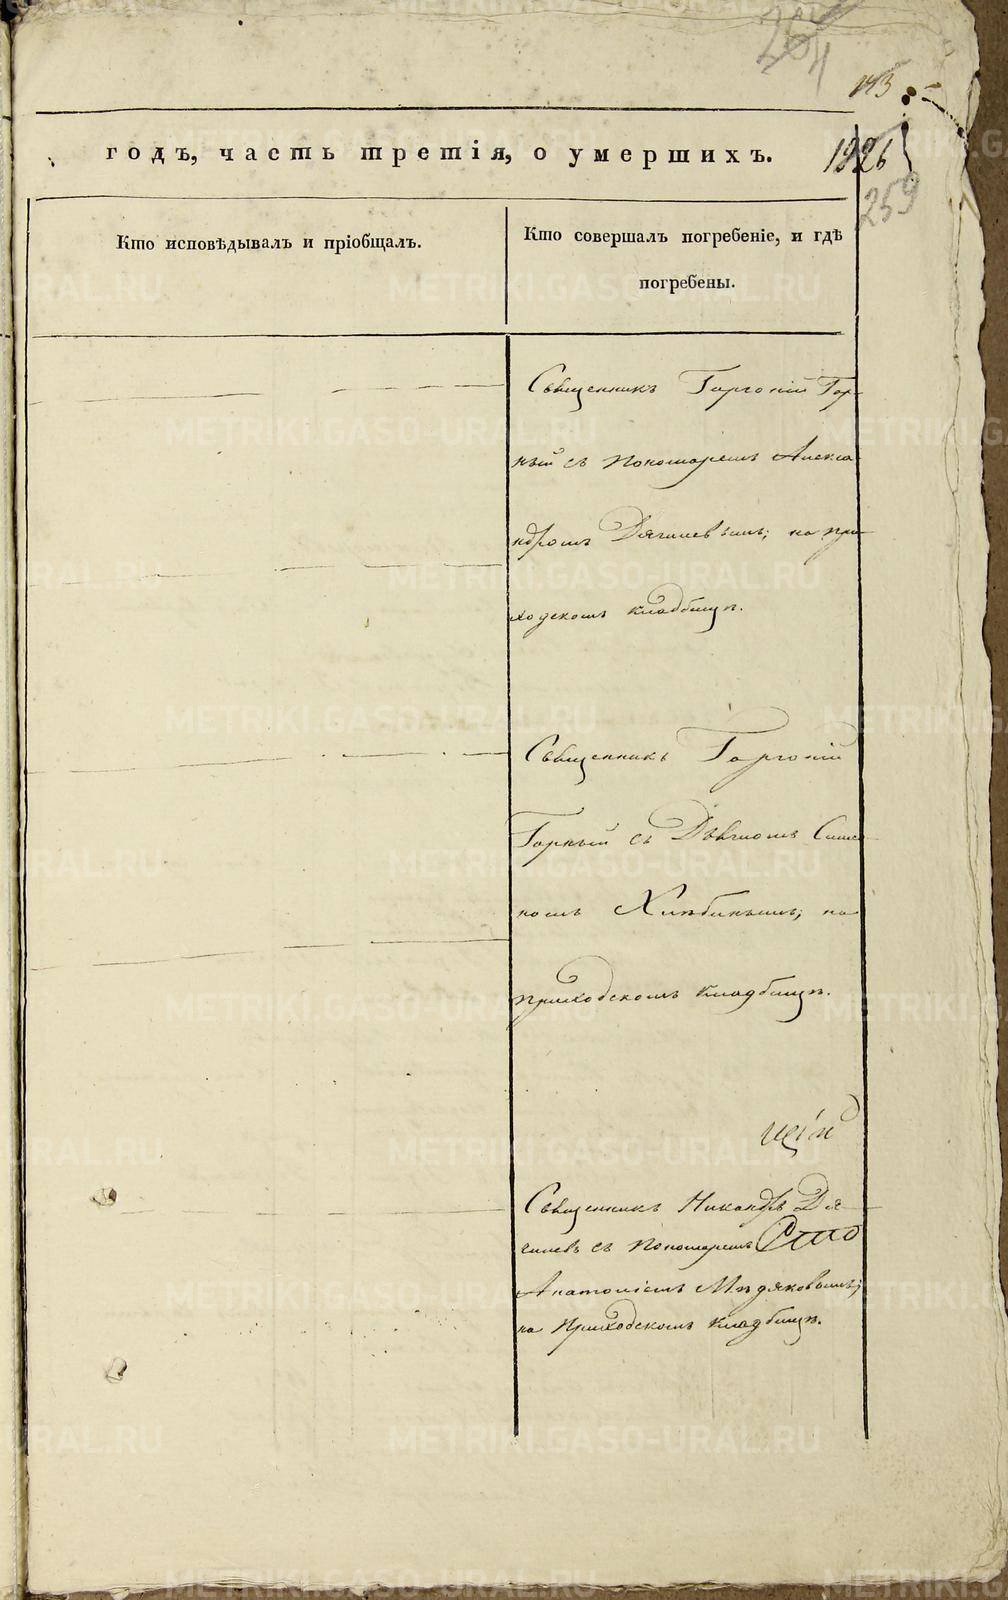 264
143
годъ, часть третія, о умершихъ.
1926
259
Кто исповѣдывалъ и пріобщалъ.
Кто совершалъ погребеніе, и гдѣ
погребены.
Священникъ Горгоній Гор-
ный съ Пономаремъ Алекса
ндромъ Дягилевымъ; на при-
ходскомъ кладбищѣ.
Священникъ Горгоній
Горный съ Дьячкомъ Симе
номъ Хлѣбинымъ; на
приходскомъ кладбищѣ.
Священникъ Никандръ Дя-
гилевъ съ Пономаремъ
Анатоліемъ Мѣдяковымъ;
на Приходскомъ кладбищѣ.
METRIKI.GASO-URAL.RU